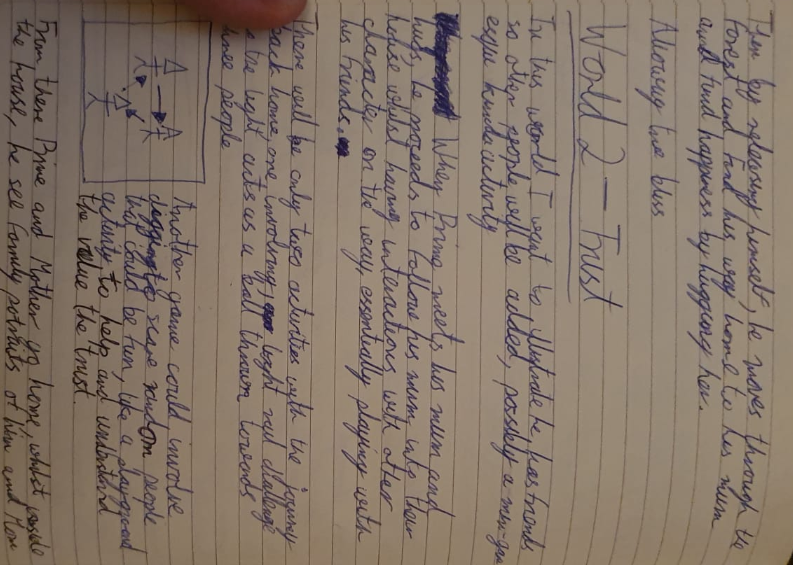 Then by releasing himself, he moves through the
forest and find his way home to his mum
and find happiness by hugging her.
Allowing the bus
World 2 — Trust
In this world I want to illustrate he has friends
so other people will be added, possibly a
kinda activity
When Prime meets his mum and
hugs, he proceeds to follow his mum into their
house whilst having interactions with other
characters on the way, essentially playing with
his friends.
There will be only two activities with the journey
back home, one involving, light red challenge
the light acts as a ball thrown towards
three people
Another game could involve
to scare random people
this could be fun, like a playground
activity to help and understand
the value the trust.
From there Prime and Mother go home, whilst inside
the house, he see family potraits of him and Mom